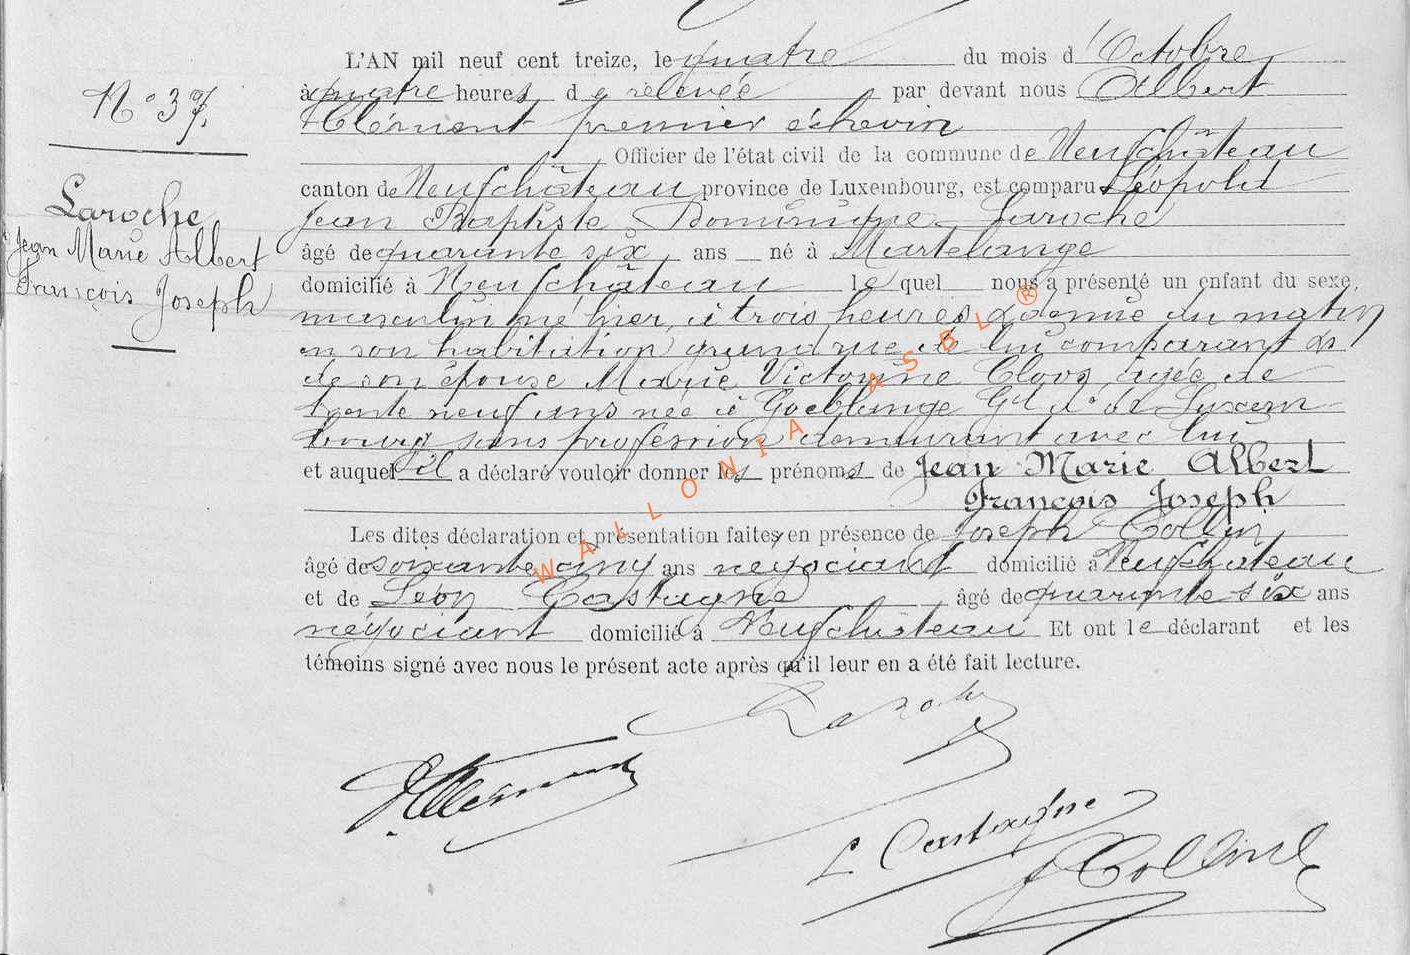 L'AN mil neuf cent treize, le quatre du mois d'Octobre
à quatre heures de relevée par devant nous Albert
Clément premier échevin
Officier de l'état civil de la commune de Neufchâteau
canton de Neufchâteau province de Luxembourg, est comparu Léopold
Jean Baptiste Dominique Laroche
âgé de quarante six ans né à Martelange
domicilié à Neufchâteau le quel nous a présenté un enfant du sexe
masculin né hier, à trois heures & demie du matin
en son habitation grand'rue de lui comparant &
de son épouse Marie Victorine Cloos agée de
trente neuf ans née à Goeblange Gd. d° de Luxem
bourg sans profession demeurant avec lui
et auquel il a déclaré vouloir donner les prénoms de Jean Marie Albert
François Joseph
Les dites déclaration et présentation faites en présence de Joseph Collin
âgé de soixante cinq ans négociant domicilié à Neufchateau
et de Léon Castagne âgé de quarante six ans
négociant domicilié à Neufchâteau Et ont le déclarant et les
témoins signé avec nous le présent acte après qu'il leur en a été fait lecture.
N° 37.
Laroche
Jean Marie Albert
François Joseph
Laroche
A. Clément
L Castaigne
J Collin
WALLONIA ASBL ®